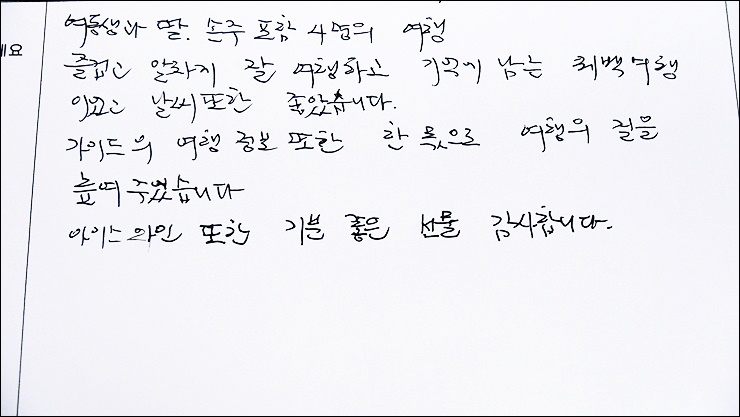 여동생과 딸. 손주 포함 4명의 여행
세요
즐겁고 알차게 잘 여행하고 기억에 남는 퀘백여행
이였고 날씨또한 좋았습니다.
가이드의 여행 정보 또한 한 몫으로 여행의 질을
높여 주었습니다
아이스와인 또한 기분 좋은 선물 감사합니다.